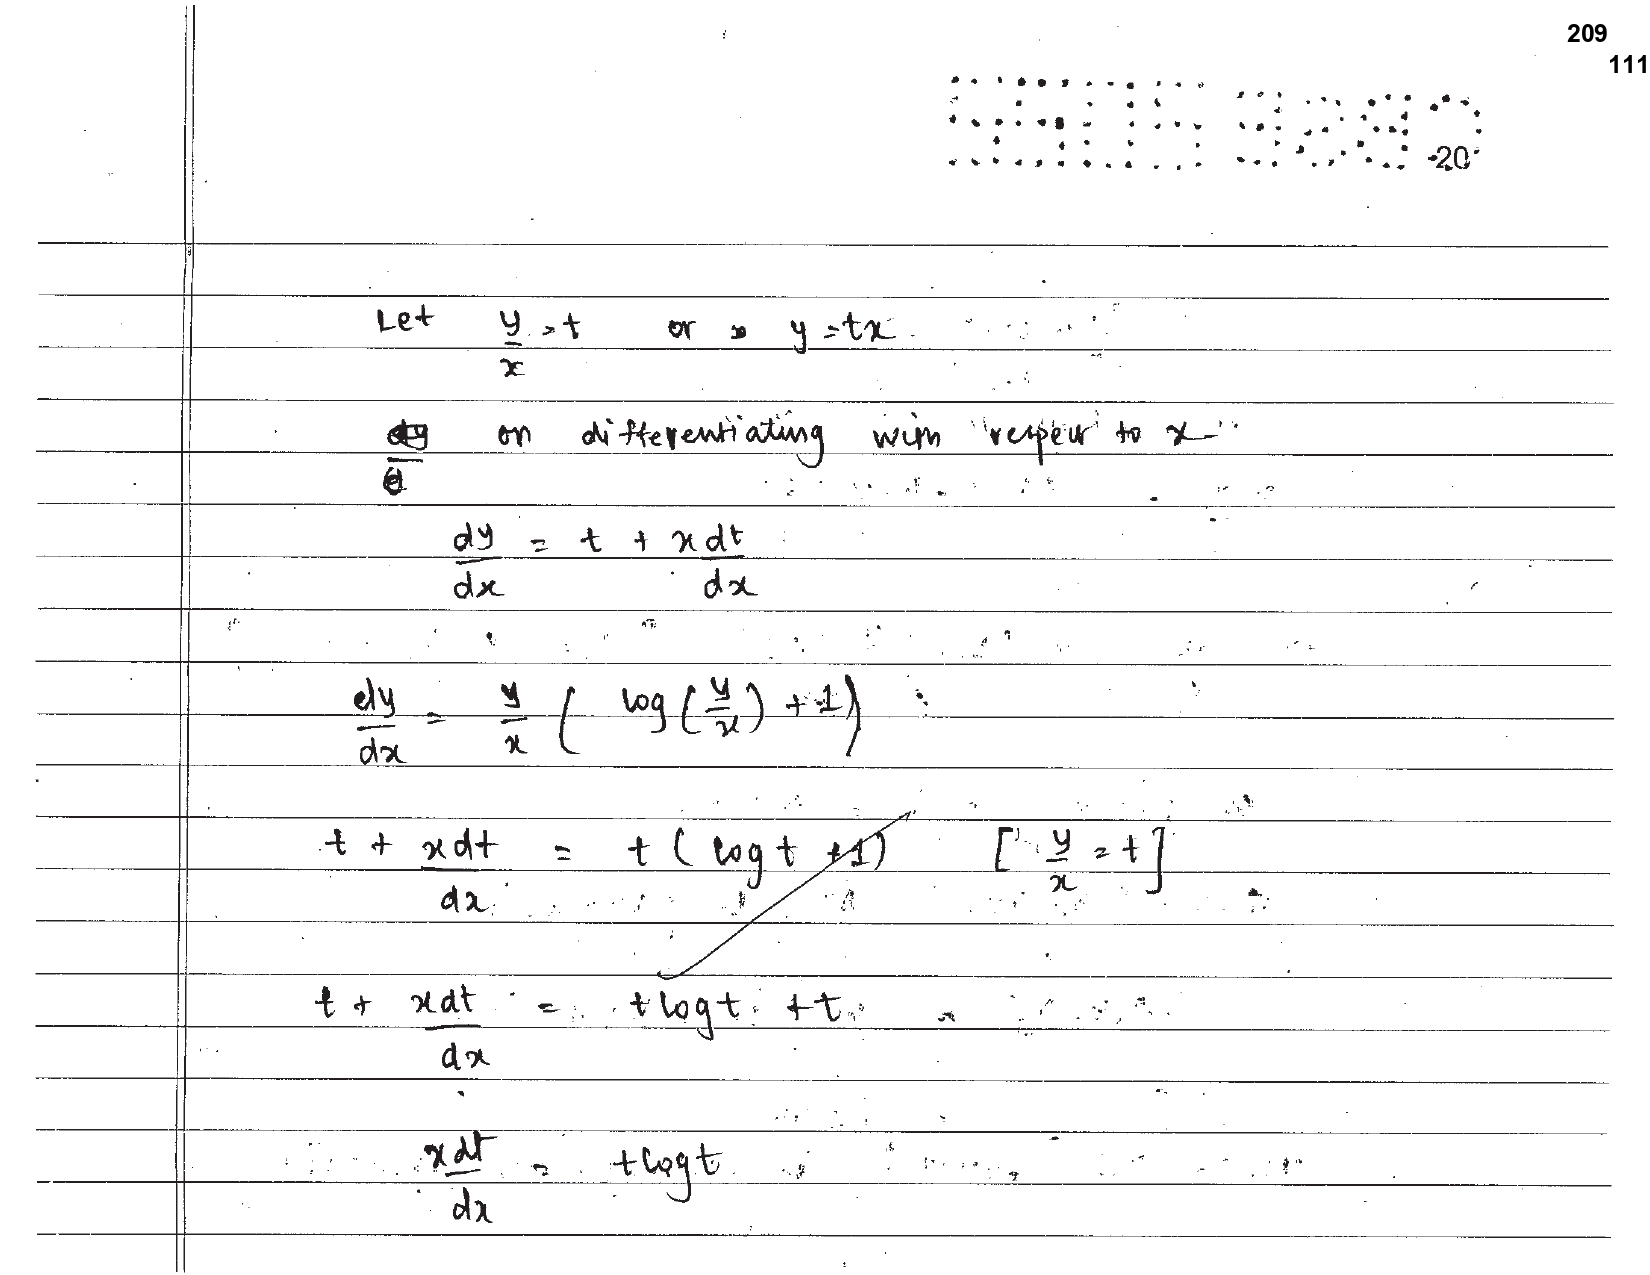 209
111
20
Let y/x = t or y = tx
on differentiating with respect to x
dy/dx = t + x dt/dx
dy/dx = y/x ( log (y/x) + 1 )
t + x dt/dx = t ( log t + 1 ) [ y/x = t ]
t + x dt/dx = t log t + t
x dt/dx = t log t